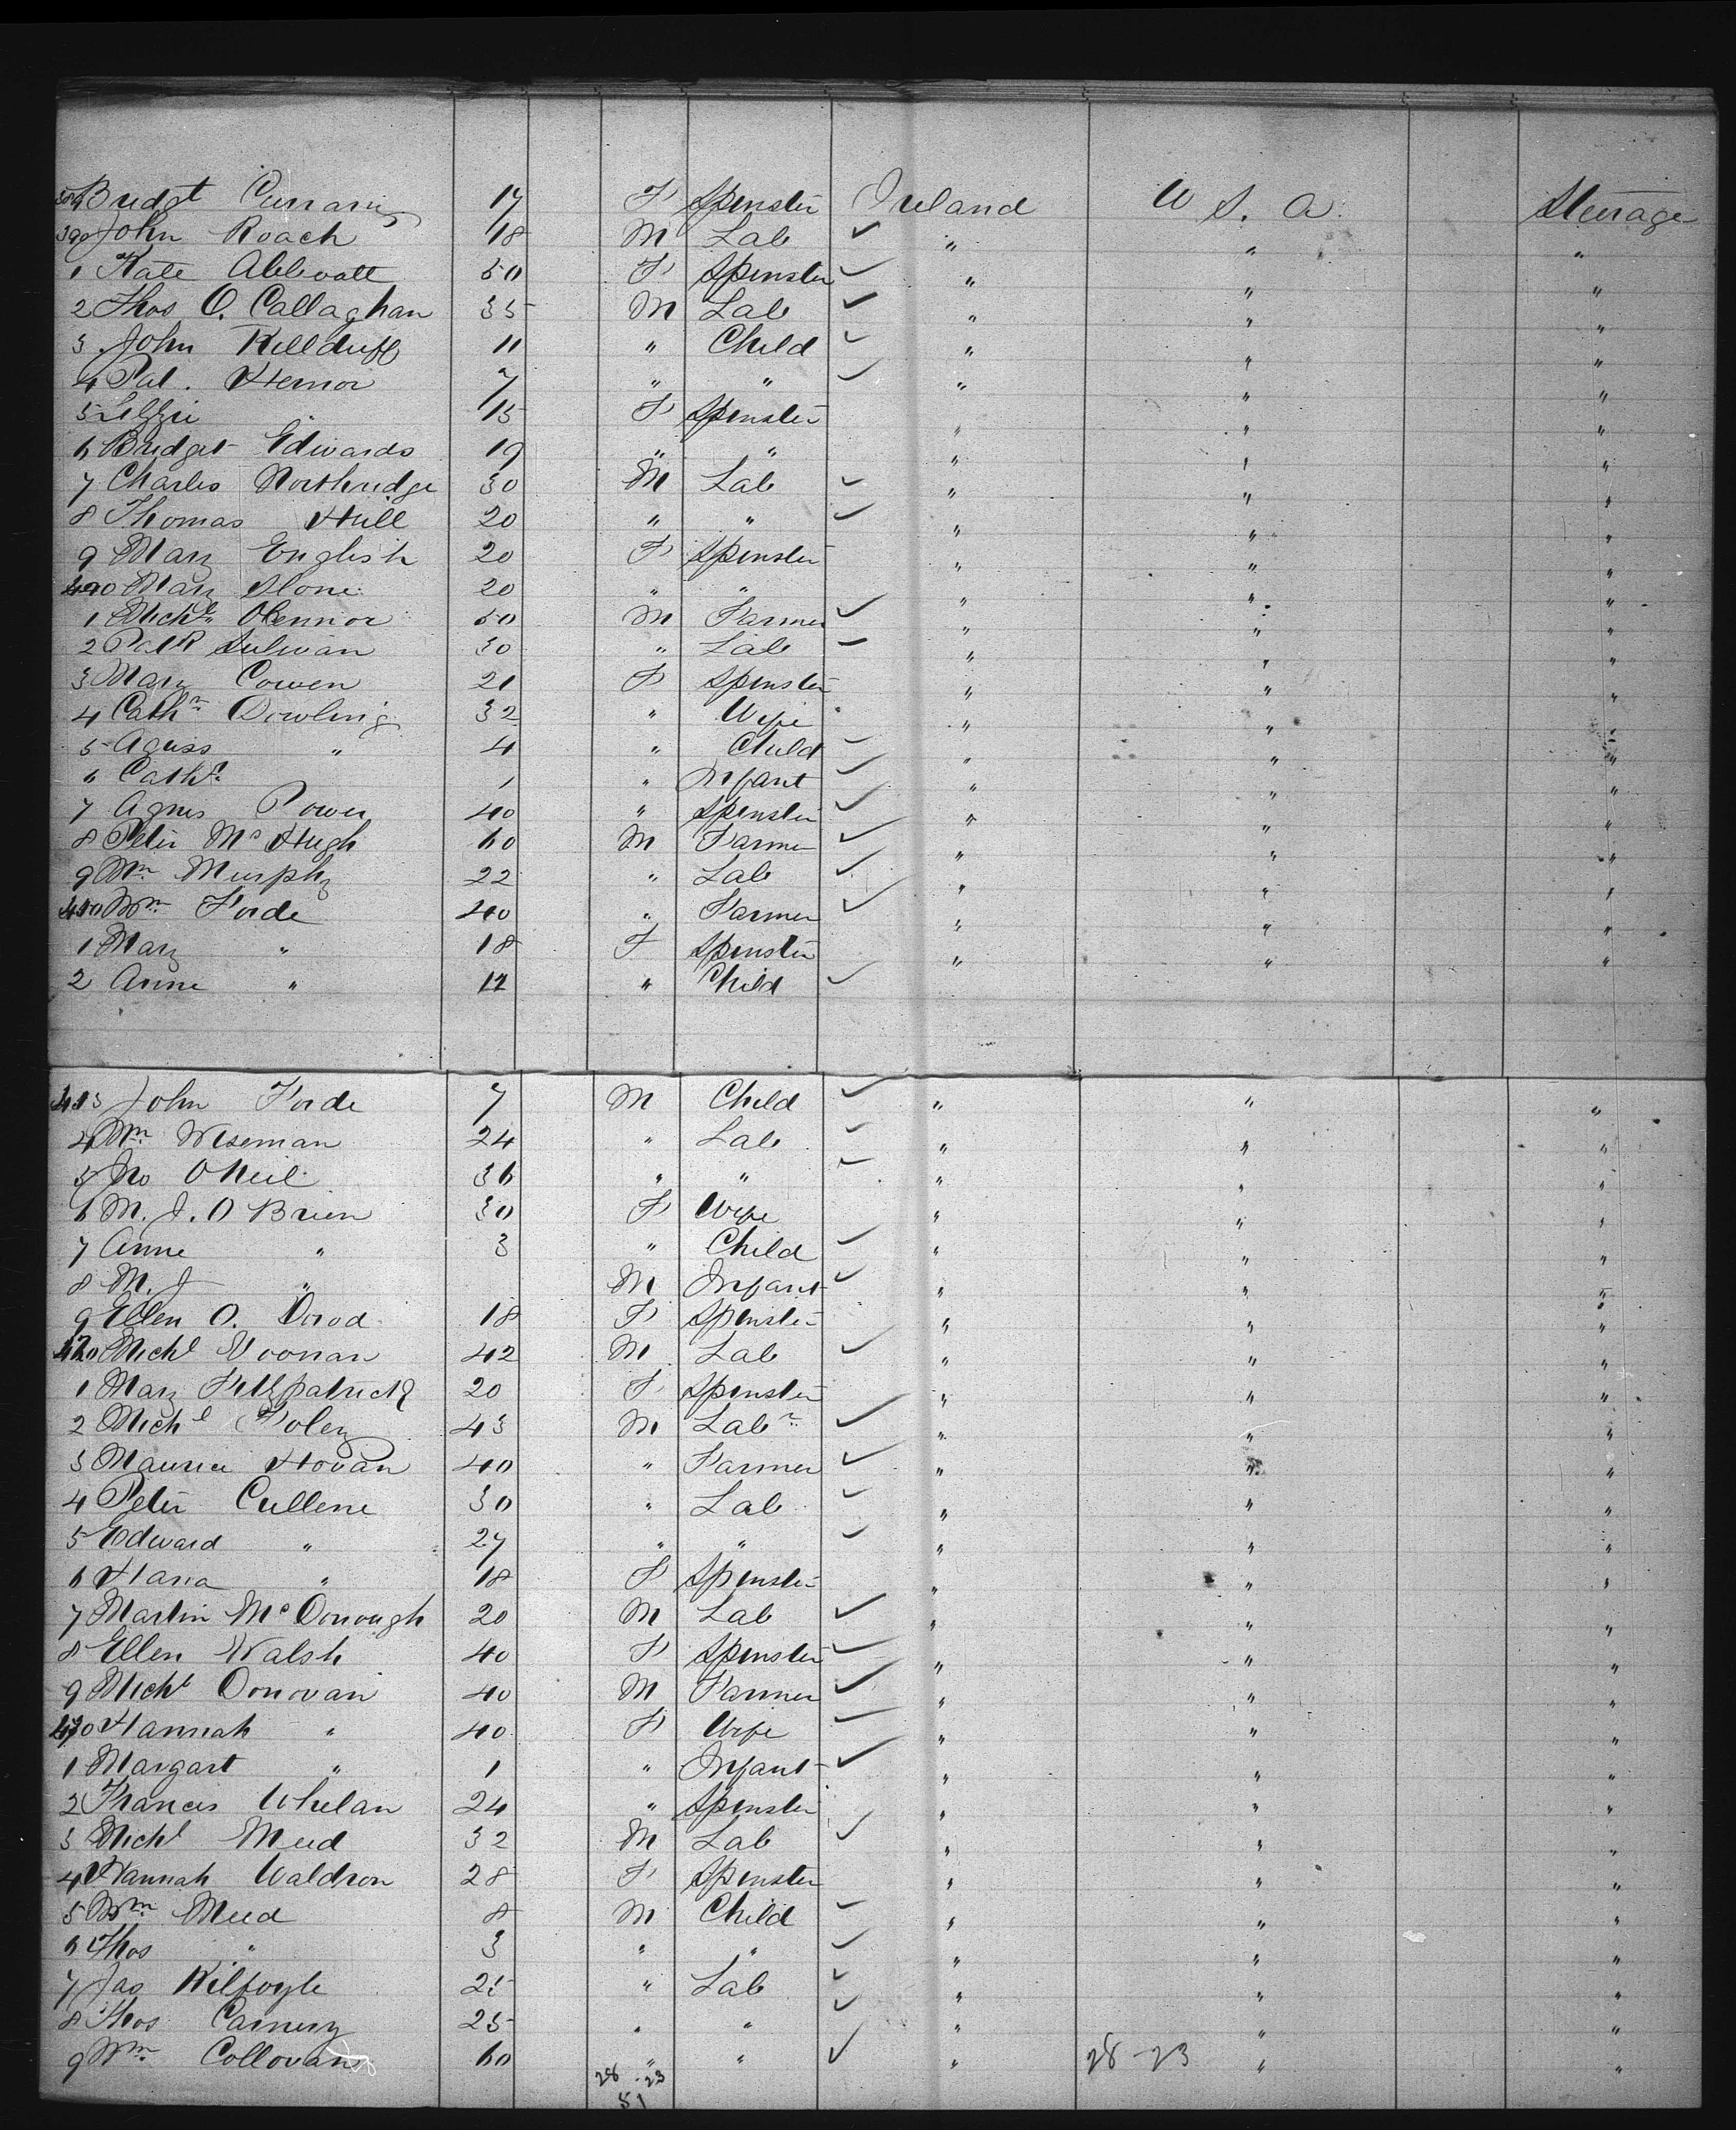 389 Bridgt Currany 17 F Spinster Ireland U S. A. Steerage
390 John Roach 18 M Lab " " "
1 Kate 50 F Spinster " " "
2 Thos O. Callaghan 35 M Lab " " "
3 John Killduff 11 " Child " " "
4 Pat. Hernor 7 " " " " "
5 Lizzie " 15 F Spinster " " "
6 Bridget Edwards 19 " " " " "
7 Charles Northridge 30 M Lab " " "
8 Thomas Hill 20 " " " " "
9 Mary English 20 F Spinster " " "
400 Mary Stone 20 " " " " "
1 Michl. OConnor 50 M Farmer " " "
2 Patk Sulivan 30 " Lab " " "
3 Mary Cowen 21 F Spinster " " "
4 Cathn Dowling 32 " Wife " " "
5 Agniss " 4 " Child " " "
6 Cathn 1 " Infant " " "
7 Agnes Power 40 " Spinster " " "
8 Peter Mc Hugh 60 M Farmer " " "
9 Wm Murphy 22 " Lab " " "
410 Wm Forde 40 " Farmer " " "
1 Mary " 18 F Spinster " " "
2 Anne " 11 " Child
413 John Forde 7 M Child " " "
4 Wm Wiseman 24 " Lab " " "
5 Jno ONeil 36 " " " " "
6 M. J. O Brien 30 F Wife " " "
7 Anne " 3 " Child " " "
8 M. J " M Infant " " "
9 Ellen O. Dowd 18 F Spinster " " "
420 Michl Noonan 42 M Lab " " "
1 Mary Fitzpatrick 20 F Spinster " " "
2 Michl Foley 43 M Labr " " "
3 Maurice Horan 40 " Farmer " " "
4 Peter Cullene 30 " Lab " " "
5 Edward " 27 " " " " "
6 Hana " 18 F Spinster " " "
7 Martin Mc Donough 20 M Lab " " "
8 Ellen Walsh 40 F Spinster " " "
9 Michl Donovan 40 M Farmer " " "
430 Hannah " 40 F Wife " " "
1 Margart " 1 " Infant " " "
2 Francis Whelan 24 " Spinster " " "
3 Michl Meed 32 M Lab " " "
4 Hannah Waldron 28 F Spinster " " "
5 Wm Meed 8 M Child " " "
6 Thos " 3 " " " " "
7 Jas Kilfoyle 25 " Lab " " "
8 Thos Carnery 25 " " " " "
9 Wm Collovan 60 " " " 28-23 " "
28-23
51